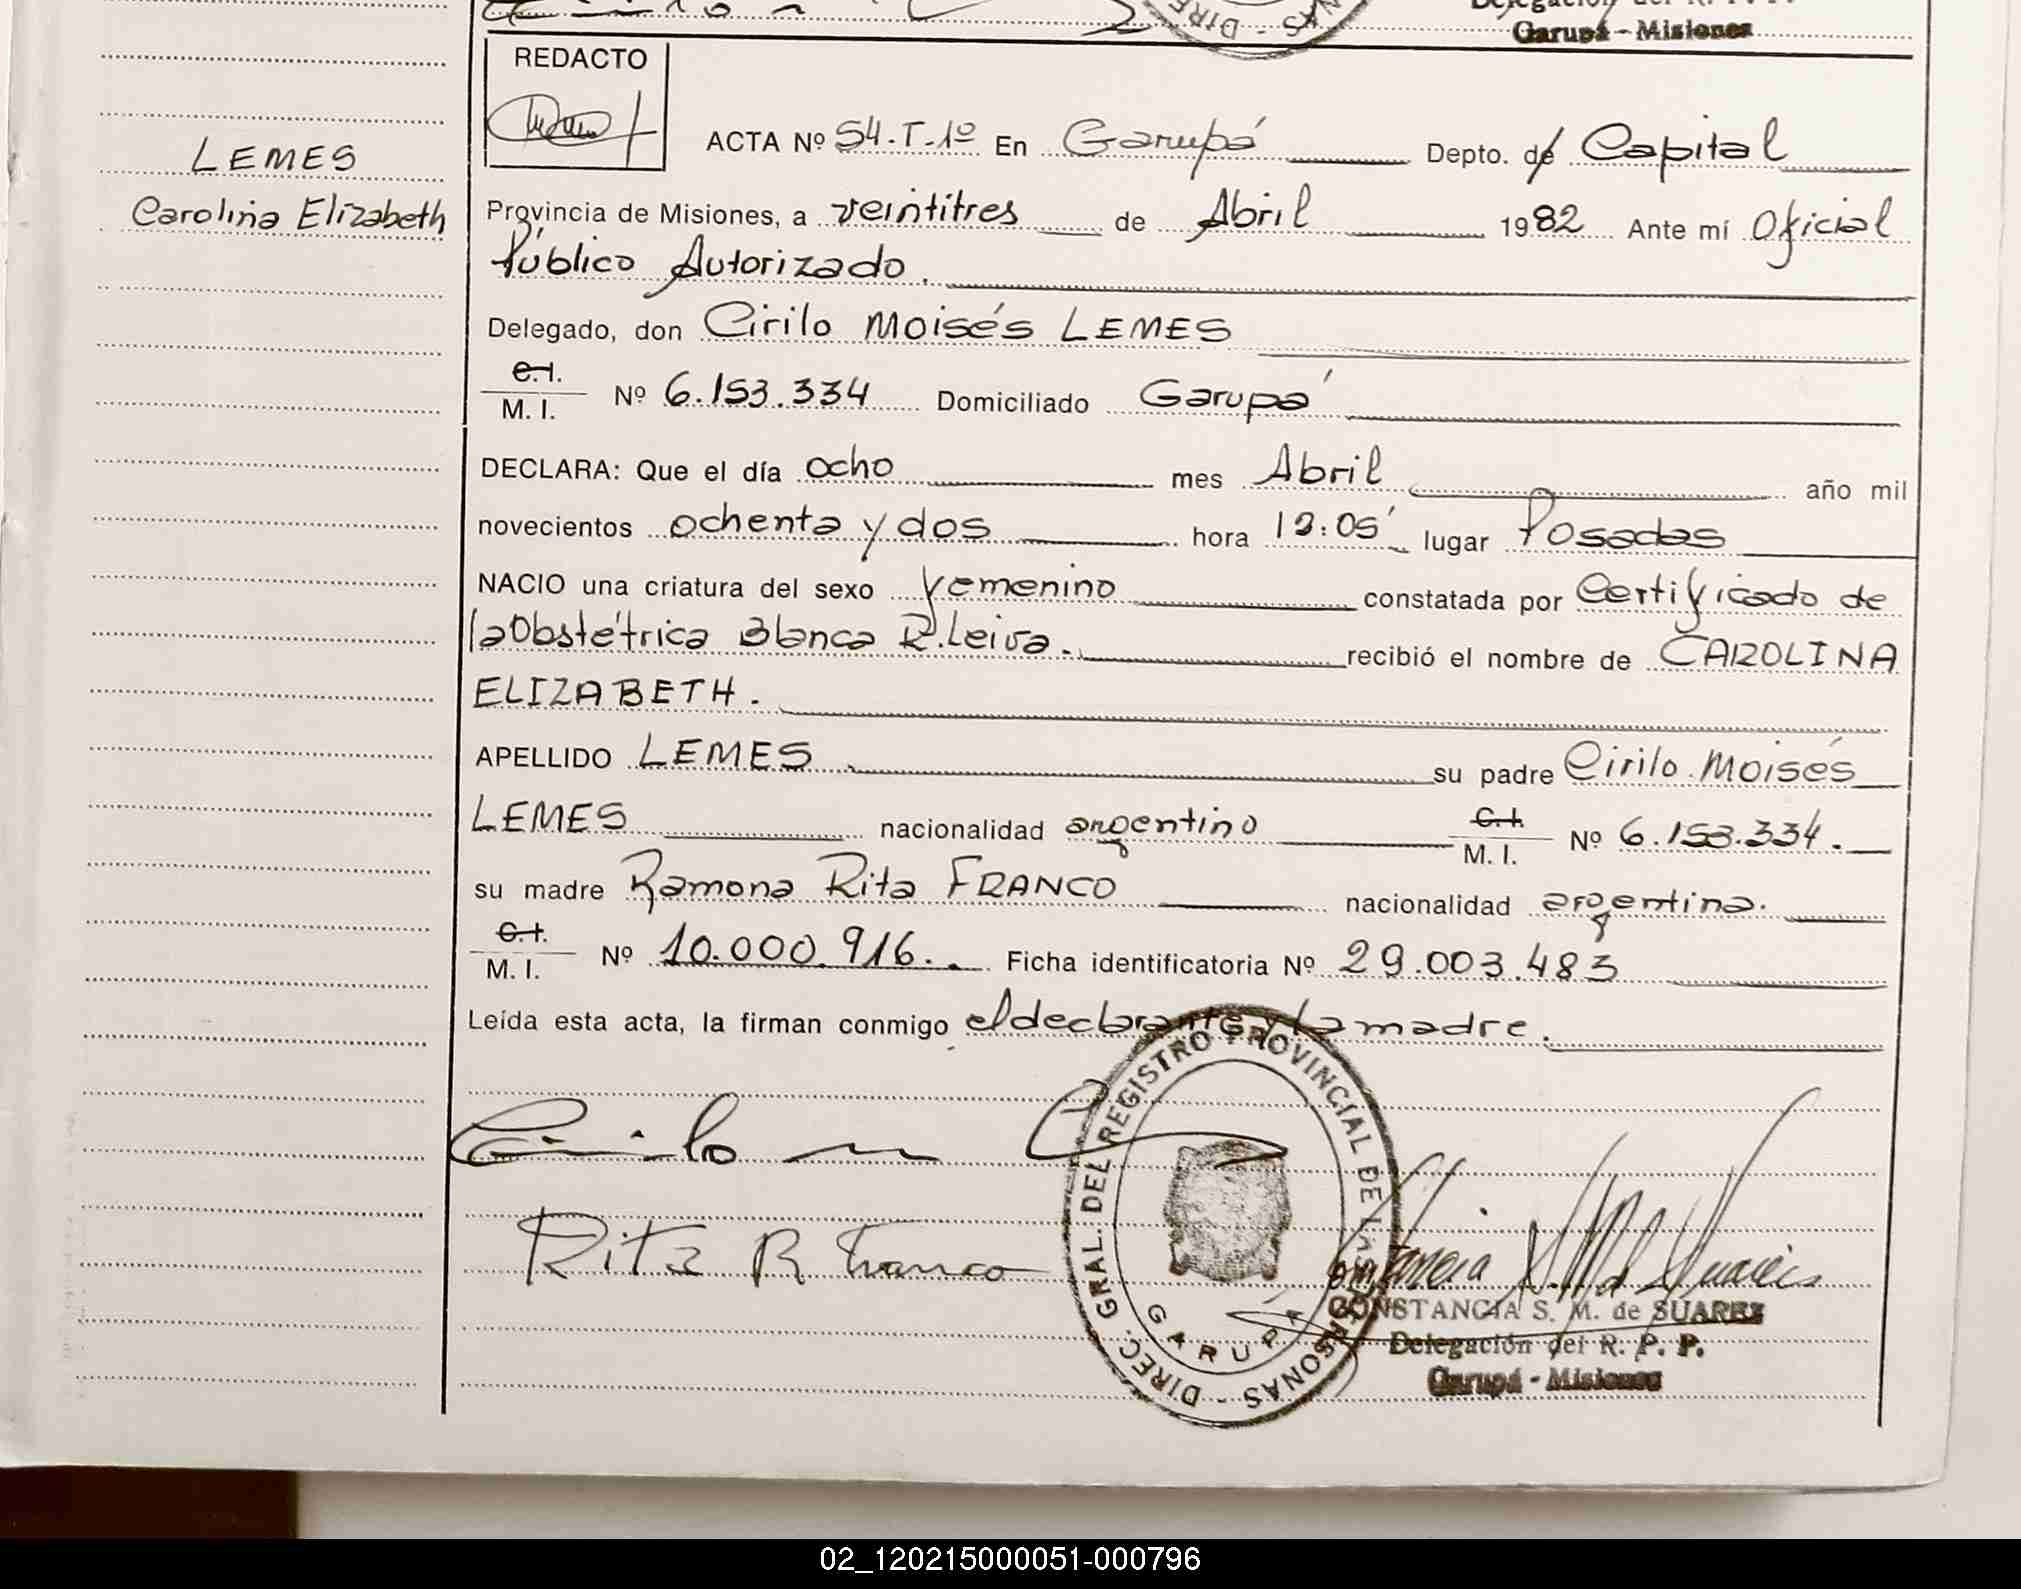 Garupá - Misiones
REDACTO
LEMES
Carolina Elizabeth
ACTA Nº 54.T.1º En Garupá Depto. de Capital
Provincia de Misiones, a veintitres de Abril 1982 Ante mí Oficial
Público Autorizado.
Delegado, don Cirilo Moisés LEMES
C.I.
M. I. Nº 6.153.334 Domiciliado Garupá
DECLARA: Que el día ocho mes Abril año mil
novecientos ochenta y dos hora lugar Posadas
NACIO una criatura del sexo femenino constatada por Certificado de
la Obstétrica Blanca R. Leiva. recibió el nombre de CAROLINA
ELIZABETH.
APELLIDO LEMES su padre Cirilo Moisés
LEMES nacionalidad argentino C.I. M. I. Nº 6.153.334.
su madre Ramona Rita FRANCO nacionalidad argentina.
C.I.
M. I. Nº 10.000.916. Ficha identificatoria Nº 29.003.483
Leída esta acta, la firman conmigo el declarante y la madre.
Cirilo
Rita R Franco
DIREC. GRAL. DEL REGISTRO PROVINCIAL DE LAS PERSONAS - GARUPA
CONSTANCIA S. M. de SUAREZ
Delegación del R. P. P.
Garupá - Misiones
02_120215000051-000796